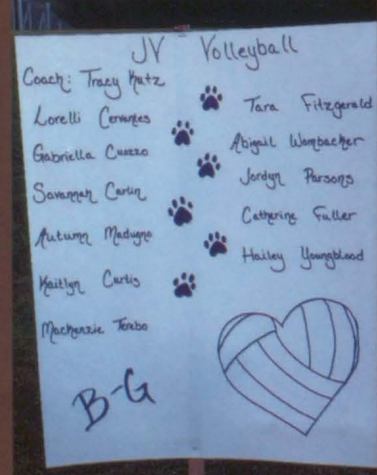 JV Volleyball
Coach: Tracy Kutz
Lorelli Cervantes
Gabriella Cuozzo
Savannah Carlin
Autumn Madugno
Kaitlyn Curtis
Mackenzie Tembo
Tara Fitzgerald
Abigail Wombacker
Jordyn Parsons
Catherine Fuller
Hailey Youngblood
B-G